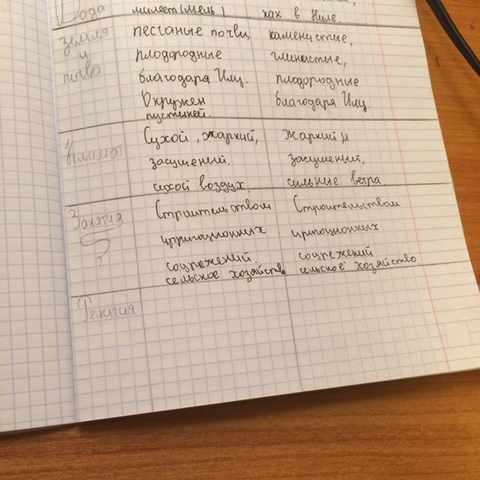 Вода милеет(мель) как в Ниле
земля песчаные почвы, каменистые,
и плодородные глинистые,
почва благодаря Илу. плодородные
Окружен благодаря Илу.
пустыней.
климат Сухой, жаркий, Жаркий и
засушенный. засушенный,
сухой воздух. сильные ветра.
Занятия Строительством Строительством
? ирригационных ирригационных
сооружений сооружений
сельское хозяйств сельское хозяйство
Религия